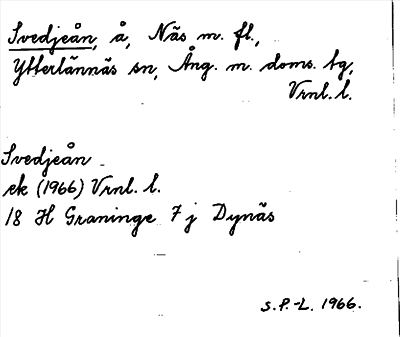 Svedjeån, å, Näs m. fl.,
Ytterlännäs sn, Ång. m. doms. tg,
Vrnl. l.
Svedjeån
ek (1966) Vrnl. l.
18 H Graninge 7 j Dynäs
S.P.-L. 1966.